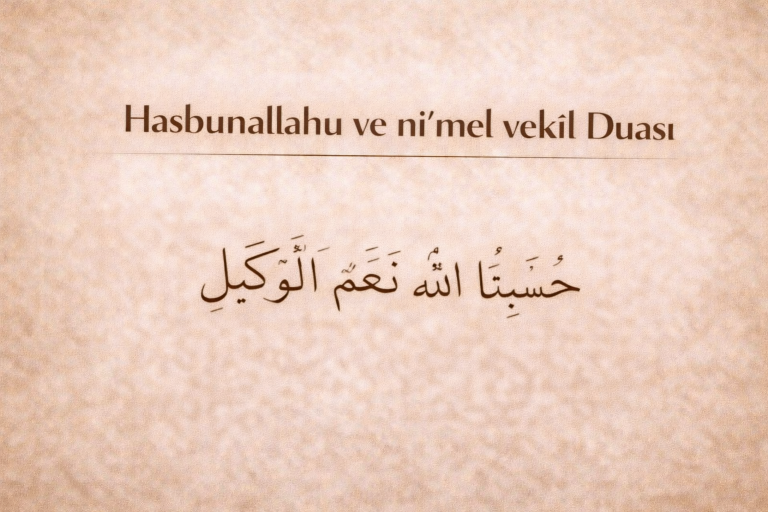 Hasbunallahu ve ni’mel vekîl Duası
حُسَبِتُا اللّٰهُ نَعَمٌّ اَلَّوَكَيلِ